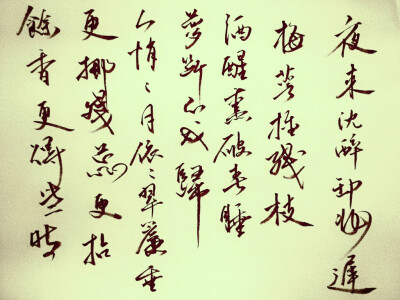 夜来沈醉卸妝遲
梅萼插残枝
酒醒熏破春睡
夢斷不成歸
人悄〻月依〻翠簾垂
更挪残蕊更拈
餘香更得些時